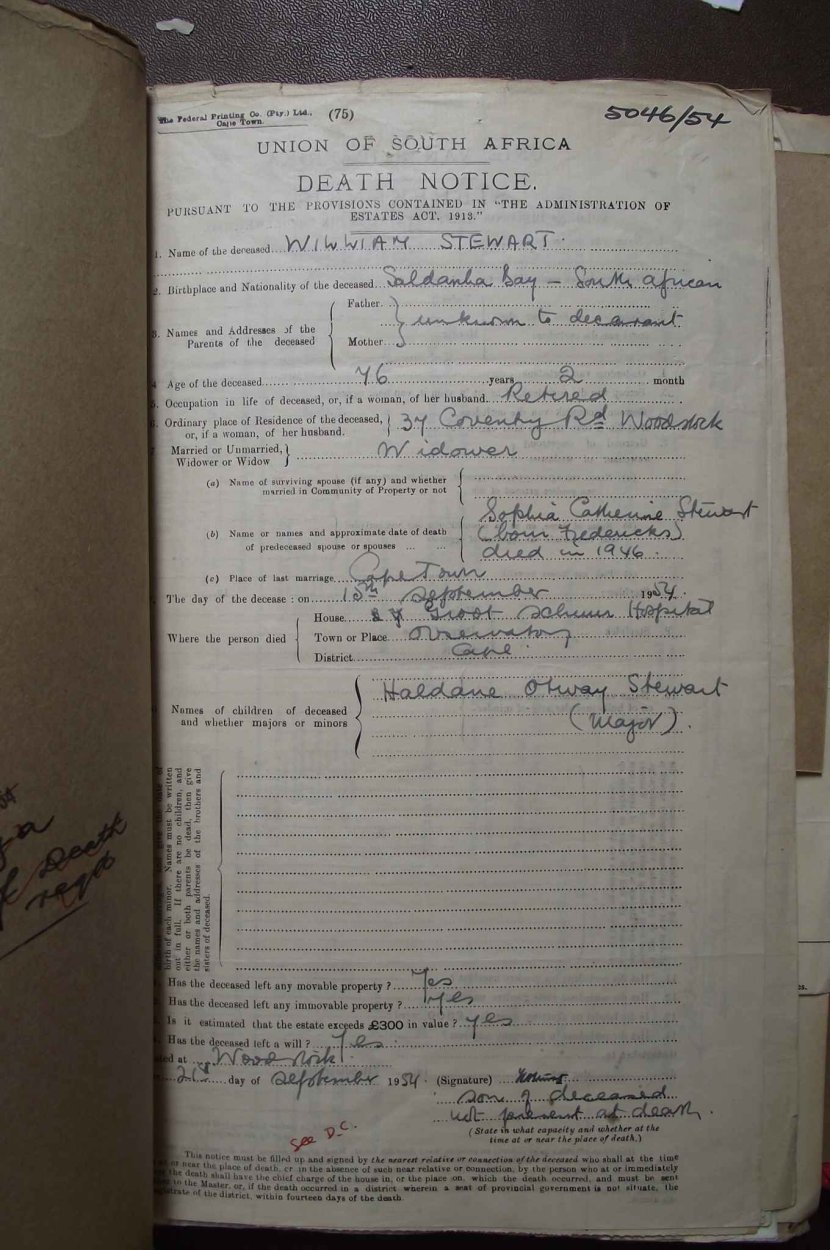 The Federal Printing Co. (Pty.) Ltd., Cape Town. (75) 5046/54
UNION OF SOUTH AFRICA
DEATH NOTICE.
PURSUANT TO THE PROVISIONS CONTAINED IN "THE ADMINISTRATION OF
ESTATES ACT, 1913."
1. Name of the deceased WILLIAM STEWART.
2. Birthplace and Nationality of the deceased Saldanha Bay - South African
Father
3. Names and Addresses of the Parents of the deceased unknown to declarant
Mother
4 Age of the deceased 76 years 2 month
5. Occupation in life of deceased, or, if a woman, of her husband Retired
6. Ordinary place of Residence of the deceased, or, if a woman, of her husband. 37 Coventry Rd Woodstock
7 Married or Unmarried, Widower or Widow Widower
(a) Name of surviving spouse (if any) and whether
married in Community of Property or not
Sophia Catherine Stewart
(b) Name or names and approximate date of death (born Fredericks)
of predeceased spouse or spouses ... ... died in 1946.
(c) Place of last marriage Cape Town
The day of the decease: on 15th September 1954.
House Groot Schuur Hospital
Where the person died Town or Place Observatory
District Cape
Haldane Otway Stewart
Names of children of deceased
and whether majors or minors (Major).
birth of each minor. Names must be written
out in full. If there are no children, and
either or both parents be dead, then give
the names and addresses of the brothers and
sisters of deceased.
Death
regs
Has the deceased left any movable property? Yes
Has the deceased left any immovable property? Yes
Is it estimated that the estate exceeds £300 in value? Yes
Has the deceased left a will? Yes
at Woodstock
21st day of September 1954. (Signature)
son of deceased
not present at death.
(State in what capacity and whether at the
time at or near the place of death.)
See D.C.
This notice must be filled up and signed by the nearest relative or connection of the deceased who shall at the time
or near the place of death, or in the absence of such near relative or connection, by the person who at or immediately
the death shall have the chief charge of the house in, or the place on, which the death occurred, and must be sent
to the Master, or, if the death occurred in a district wherein a seat of provincial government is not situate, the
of the district, within fourteen days of the death.